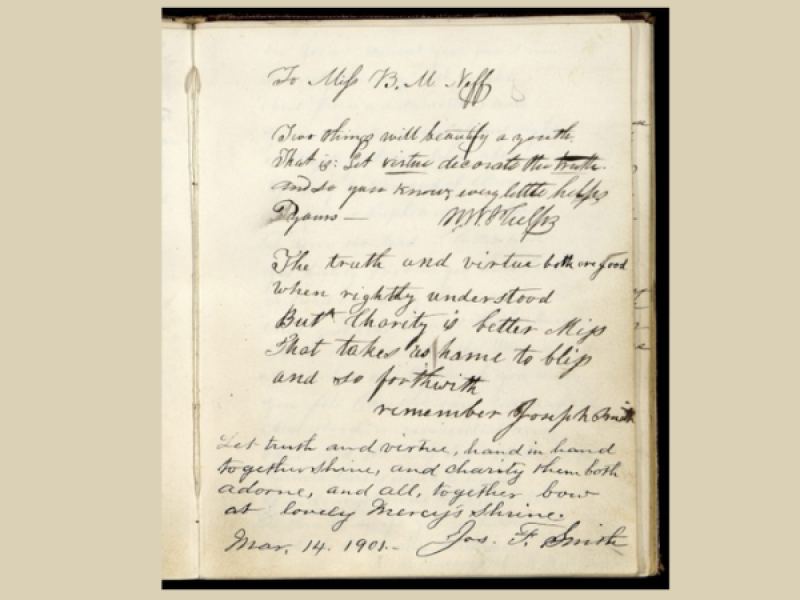 To Miss B. M Neff
Two things will beautify a youth.
That is: Let virtue decorate the truth.
and so you know; every little helps
yours — W. W. Phelps
The truth and virtue both are good
When rightly understood
But Charity is better Miss
That takes us home to bliss
and so forthwith
remember Joseph Smith
Let truth and virtue, hand in hand
together shine, and charity them both
adorne, and all, together bow
at lovely Mercy's Shrine.
Mar. 14. 1901.- Jos. F. Smith